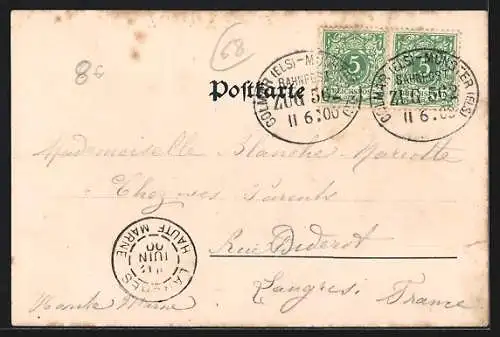 68
86
5
5
REICHSPOST
COLMAR (ELS)-MÜNSTER (ELS)
BAHNPOST
ZUG 562
11 6 00
COLMAR (ELS)-MÜNSTER (ELS)
BAHNPOST
ZUG 562
11 6 00
Postkarte
Mademoiselle Blanche Mariotte
Chez ses Parents
Rue Diderot
Langres. France
Haute Marne
LANGRES
HAUTE MARNE
JUIN
00